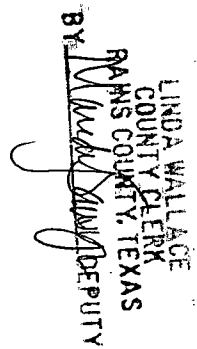 LINDA WALLACE
COUNTY CLERK
RAINS COUNTY, TEXAS
BY DEPUTY